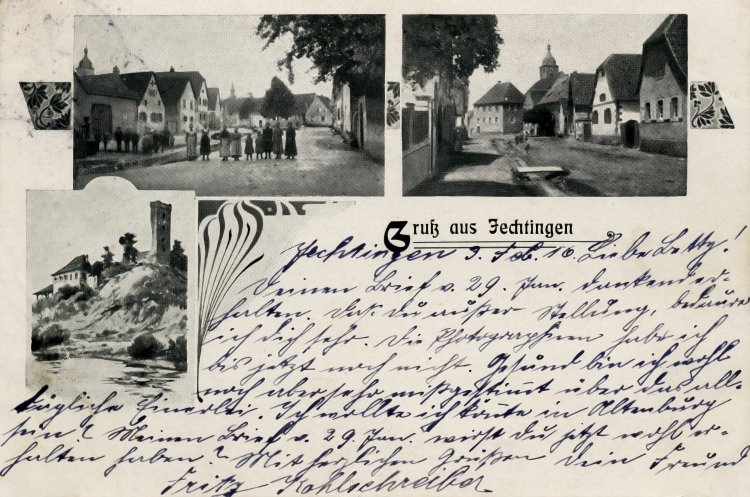 Gruß aus Jechtingen
Jechtingen 3. Feb. 16 Liebe Betty!
Deinen Brief v. 29. Jan. dankend er-
halten. Daß du außer Stellung, bedaure
ich dich sehr. Die Photographien habe ich
bis jetzt noch nicht. Gesund bin ich wohl
noch aber sehr mißgestimmt über das all-
tägliche Einerlei. Ich wollte ich könnte in Altenburg
sein? Meinen Brief v. 29. Jan. wirst du jetzt wohl er-
halten haben? Mit herzlichen Grüßen dein Freund
Fritz Kohlschreiber